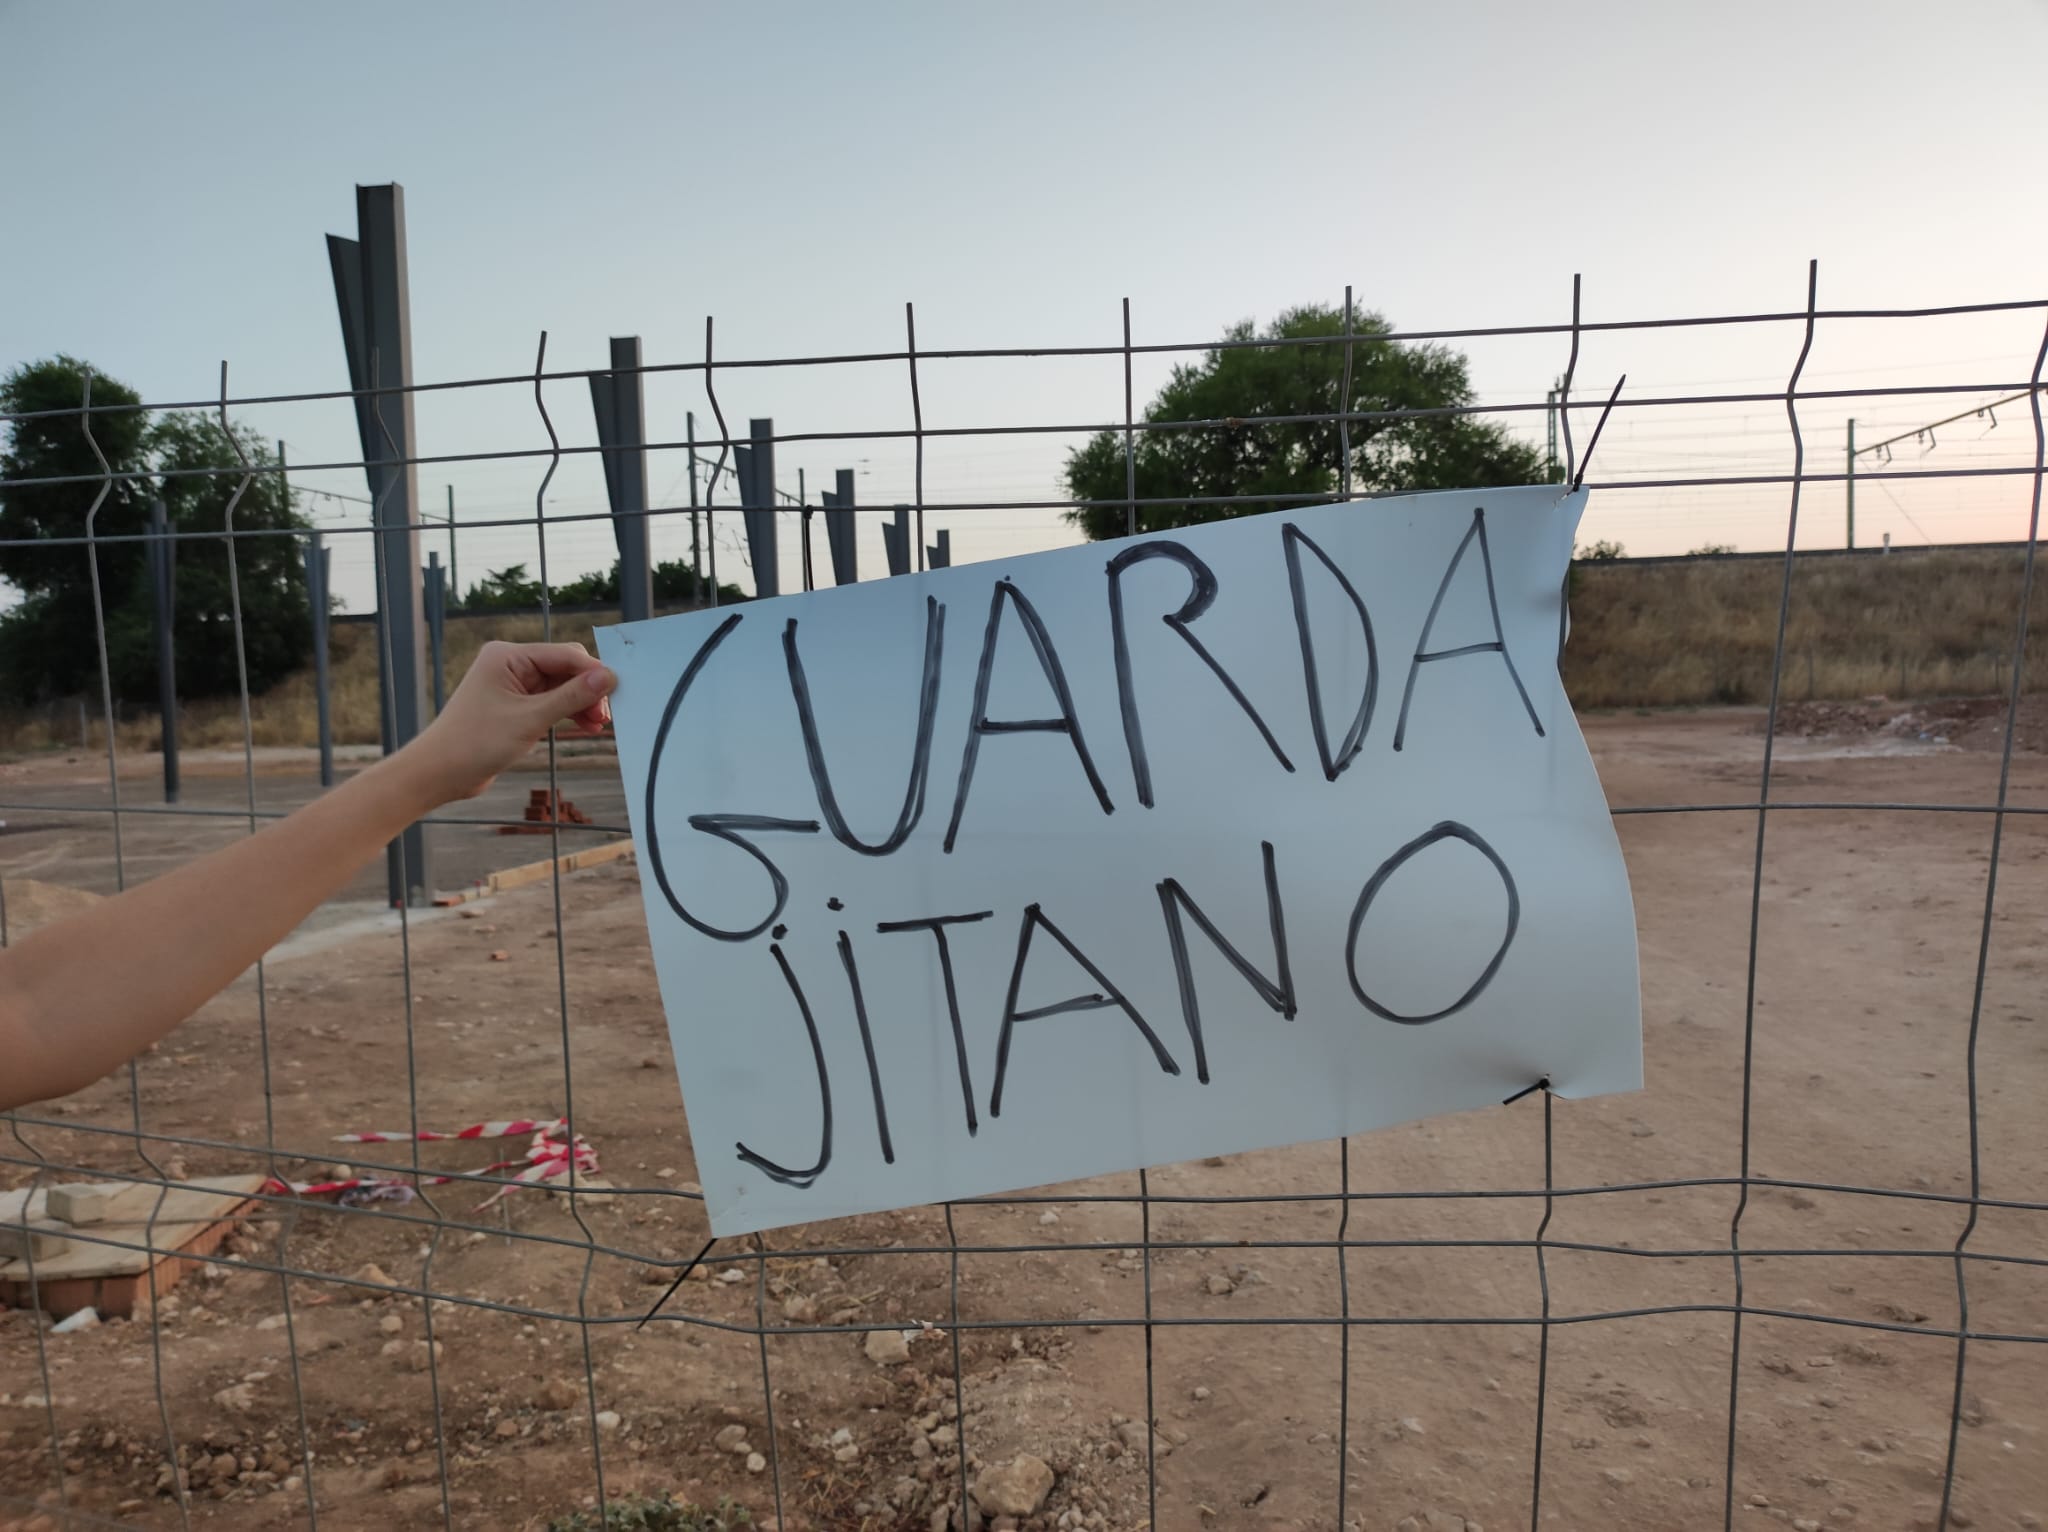 GUARDA
jiTANO